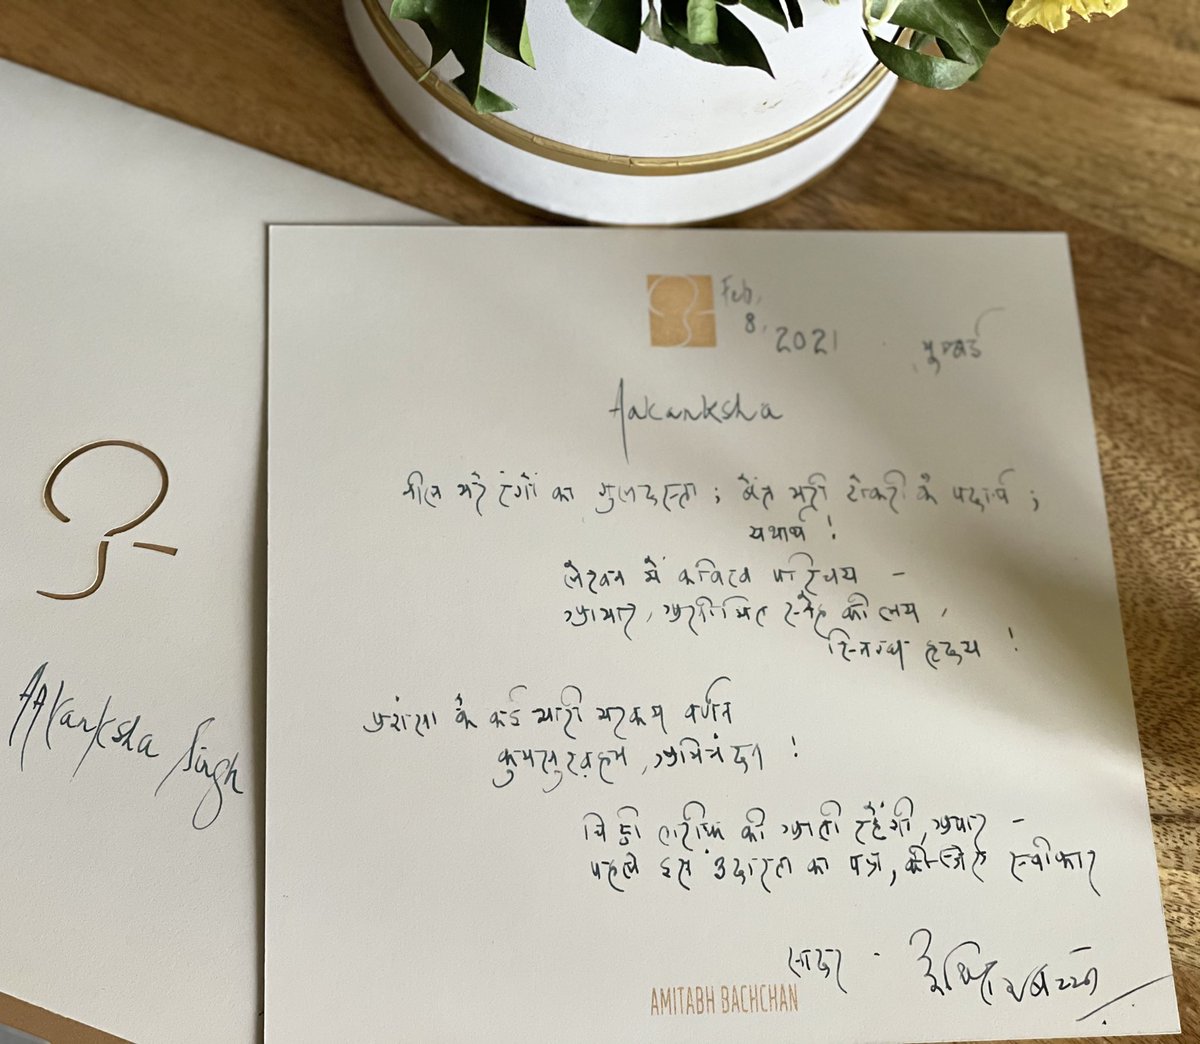 Feb,
8, 2021 मुम्बई
Aakanksha
नील भरे रंगों का गुलदस्ता ; बेंत भरी टोकरी के पदार्थ ;
यथार्थ !
लेखन में कवित्व परिचय -
अपार, अपरिमित स्नेह की लय ,
स्निग्ध हृदय !
प्रशंसा के कई वर्णन
अभिनंदन !
चिट्ठी तारीफ़ की आती रहेंगी, अपार -
पहले इस उदारता का पत्र, कीजिए स्वीकार
सादर -
अमिताभ बच्चन
AMITABH BACHCHAN
Aakanksha Singh